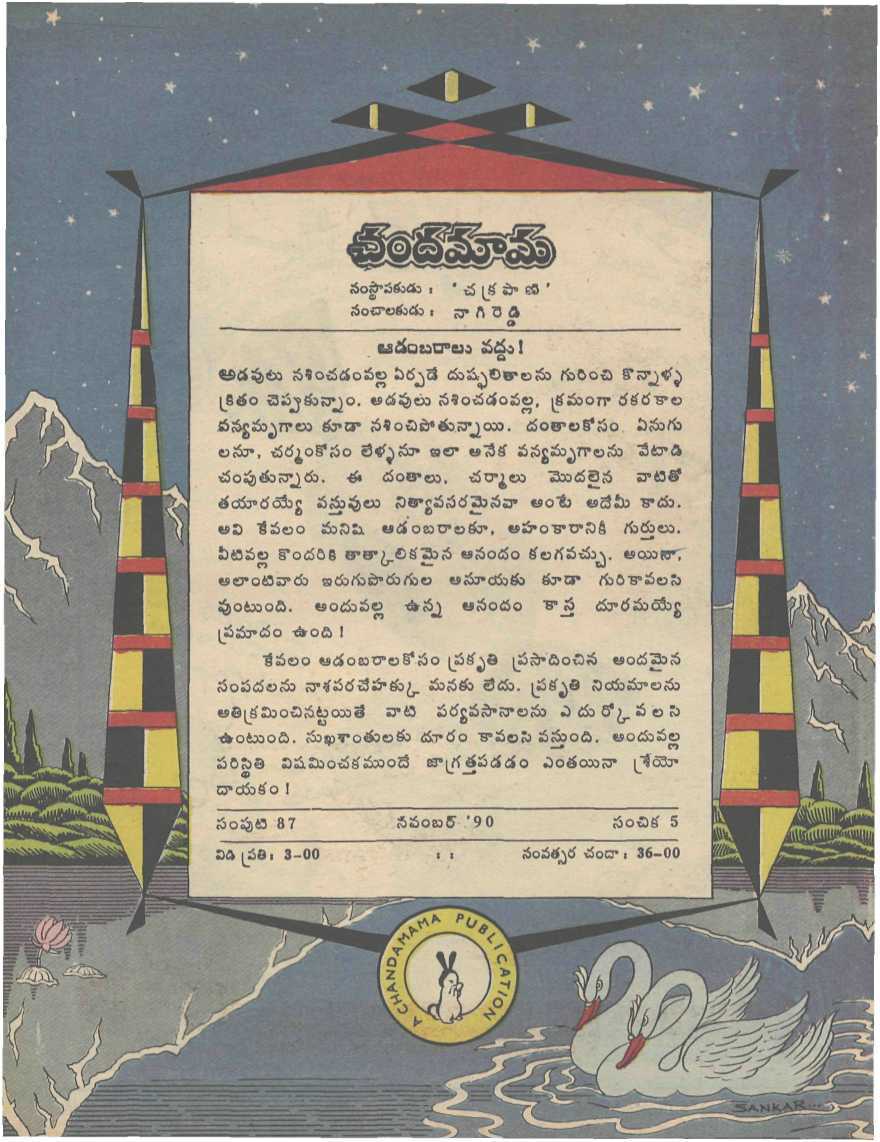 చందమామ
సంస్థాపకుడు : ' చ క్ర పా ణి '
సంచాలకుడు : నా గి రె డ్డి
ఆడంబరాలు వద్దు!
అడవులు నశించడంవల్ల ఏర్పడే దుష్ఫలితాలను గురించి కొన్నాళ్ళ
క్రితం చెప్పుకున్నాం. అడవులు నశించడంవల్ల, క్రమంగా రకరకాల
వన్యమృగాలు కూడా నశించిపోతున్నాయి. దంతాలకోసం ఏనుగు
లనూ, చర్మంకోసం లేళ్ళనూ ఇలా అనేక వన్యమృగాలను వేటాడి
చంపుతున్నారు. ఈ దంతాలు, చర్మాలు మొదలైన వాటితో
తయారయ్యే వస్తువులు నిత్యావసరమైనవా అంటే అదేమీ కాదు.
అవి కేవలం మనిషి ఆడంబరాలకూ, అహంకారానికీ గుర్తులు.
వీటివల్ల కొందరికి తాత్కాలికమైన ఆనందం కలగవచ్చు. అయినా,
అలాంటివారు ఇరుగుపొరుగుల అసూయకు కూడా గురికావలసి
వుంటుంది. అందువల్ల ఉన్న ఆనందం కాస్త దూరమయ్యే
ప్రమాదం ఉంది!
కేవలం ఆడంబరాలకోసం ప్రకృతి ప్రసాదించిన అందమైన
సంపదలను నాశపరచేహక్కు మనకు లేదు. ప్రకృతి నియమాలను
అతిక్రమించినట్టయితే వాటి పర్యవసానాలను ఎదుర్కోవలసి
ఉంటుంది. సుఖశాంతులకు దూరం కావలసి వస్తుంది. అందువల్ల
పరిస్థితి విషమించకముందే జాగ్రత్తపడడం ఎంతయినా శ్రేయో
దాయకం!
సంపుటి 87 నవంబర్ '90 సంచిక 5
విడి ప్రతి: 3-00 : : సంవత్సర చందా : 36-00
A CHANDAMAMA PUBLICATION
SANKAR